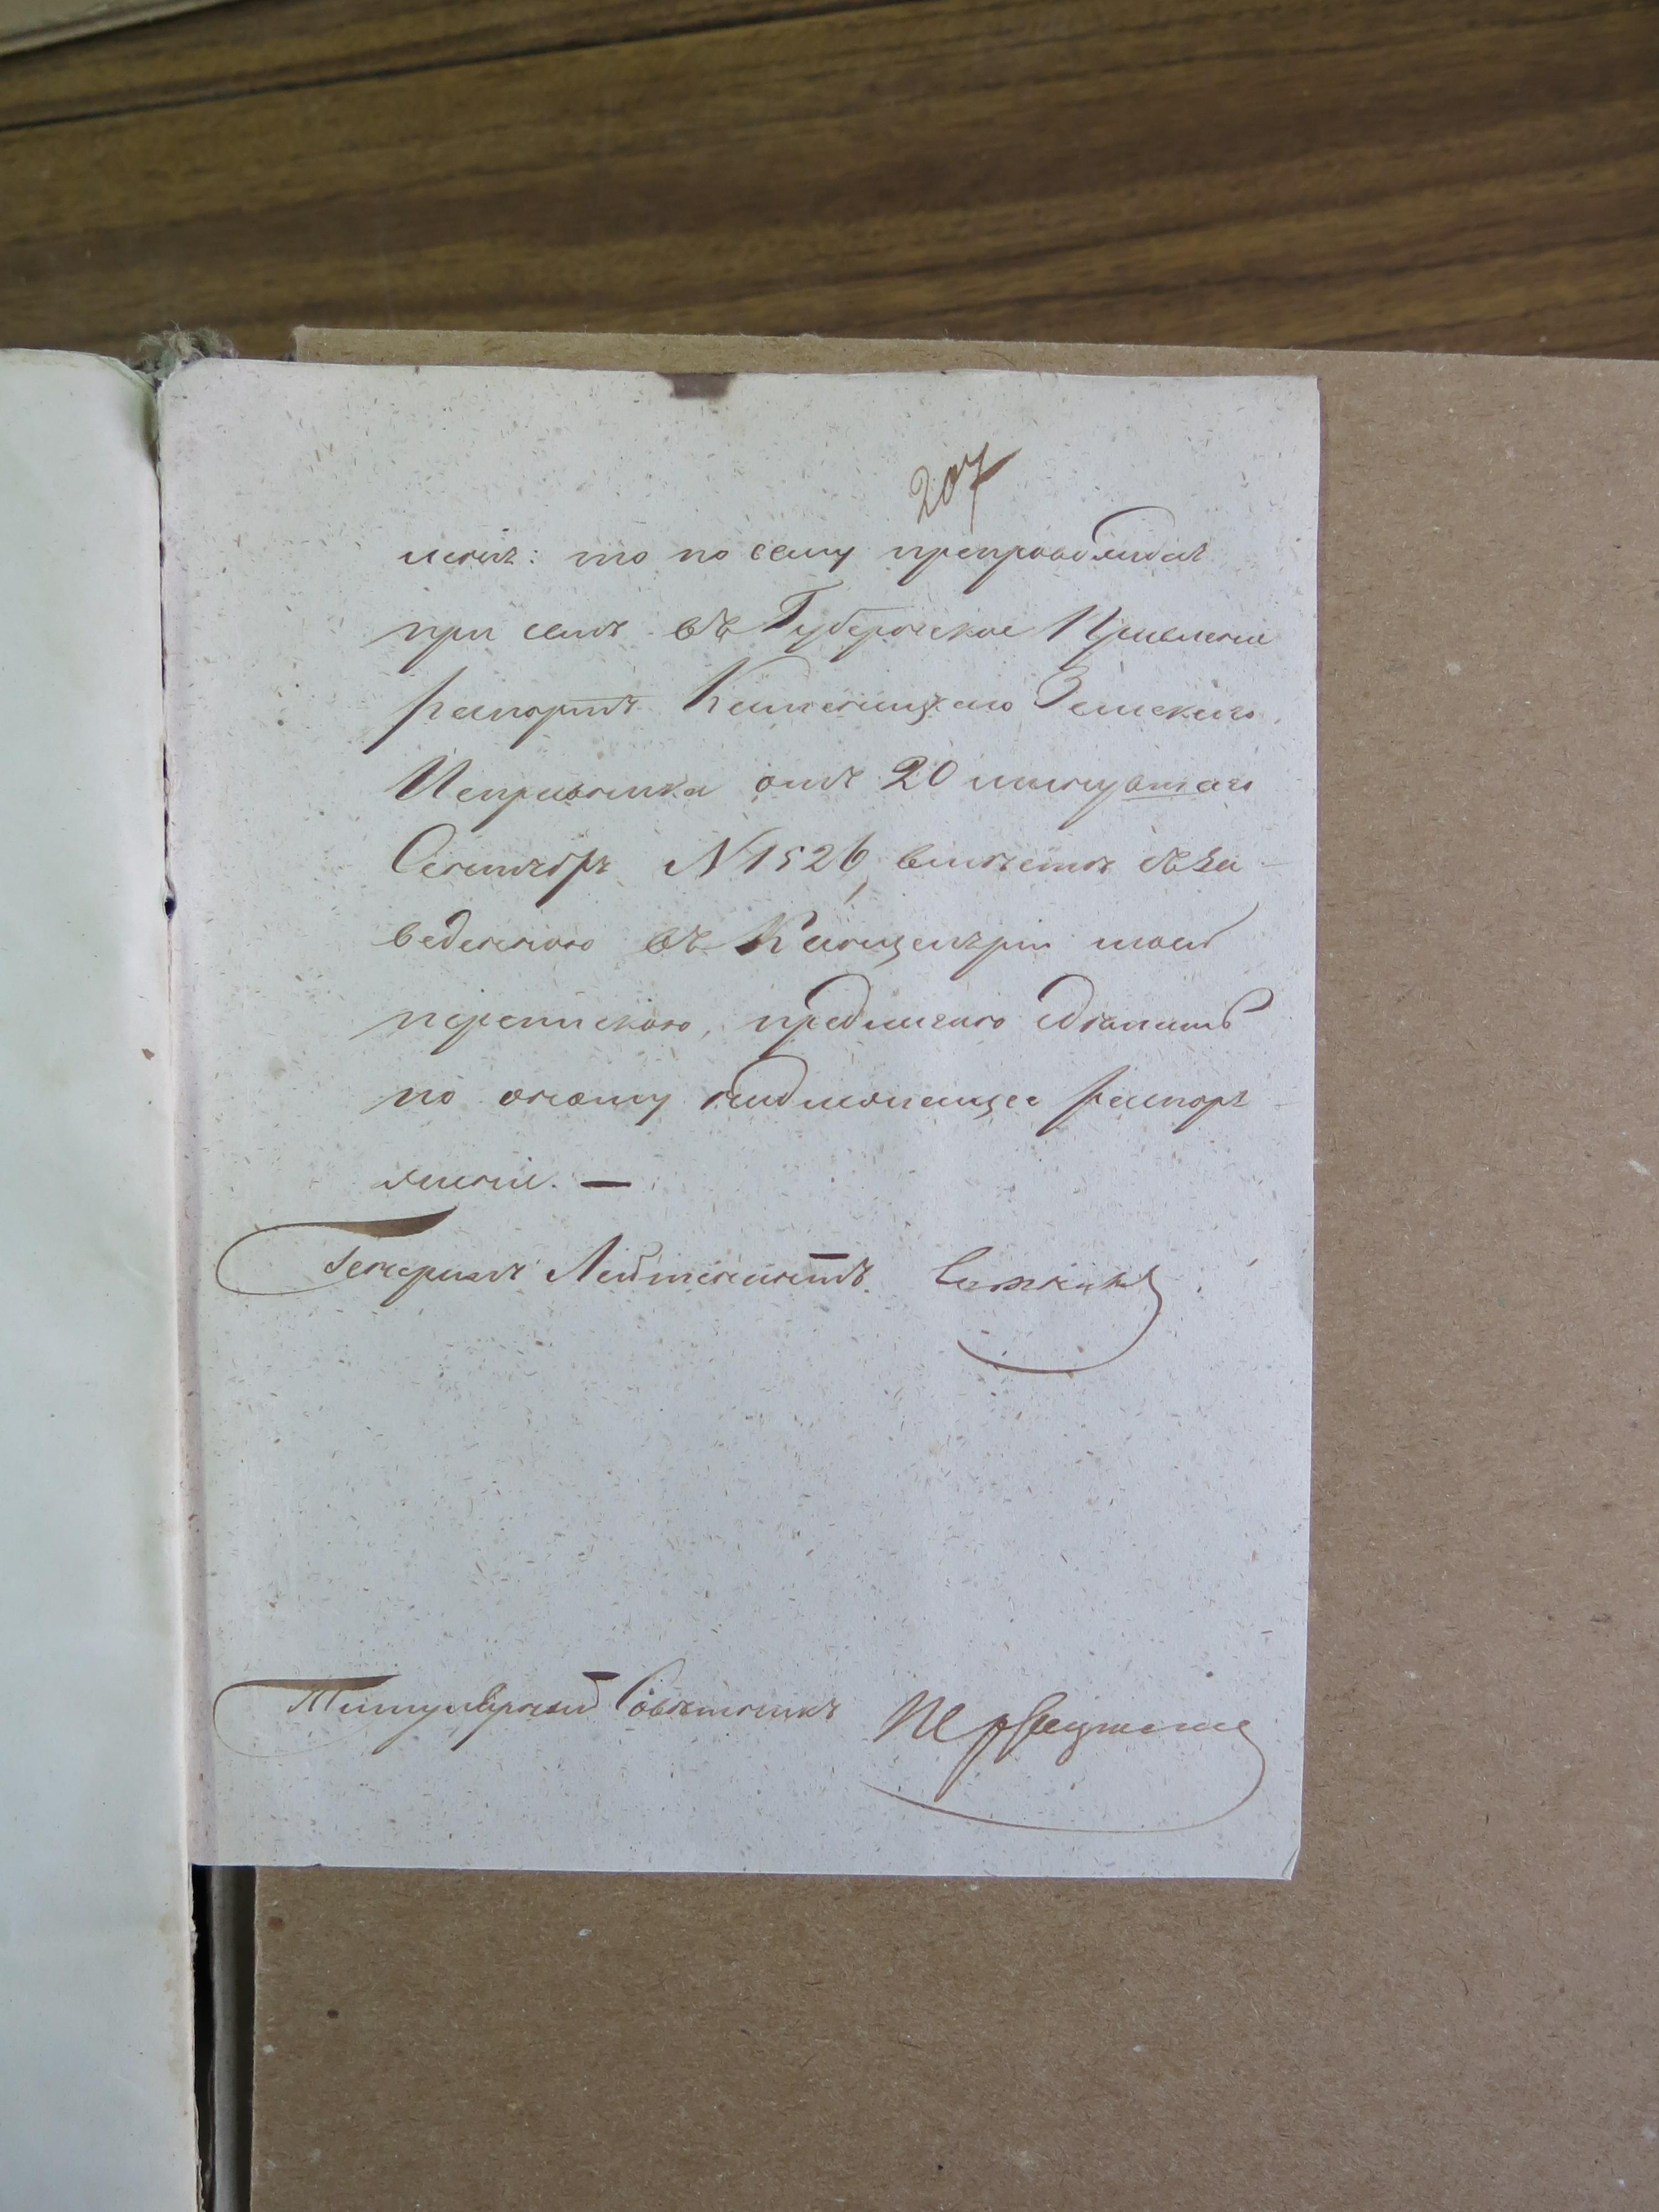 207
нія: то по сему препровождая
при семъ въ Губернское Правленіе
рапортъ Каменецкаго Земскаго
Исправника отъ 20 минувшаго
Сентября N 1526, вмѣстѣ съ за
веденною въ Канцеляріи моей
перепискою, предлагаю сдѣлать
по оному надлежащее распоря
женіе. —
Генералъ Лейтенантъ
Титулярный Совѣтникъ